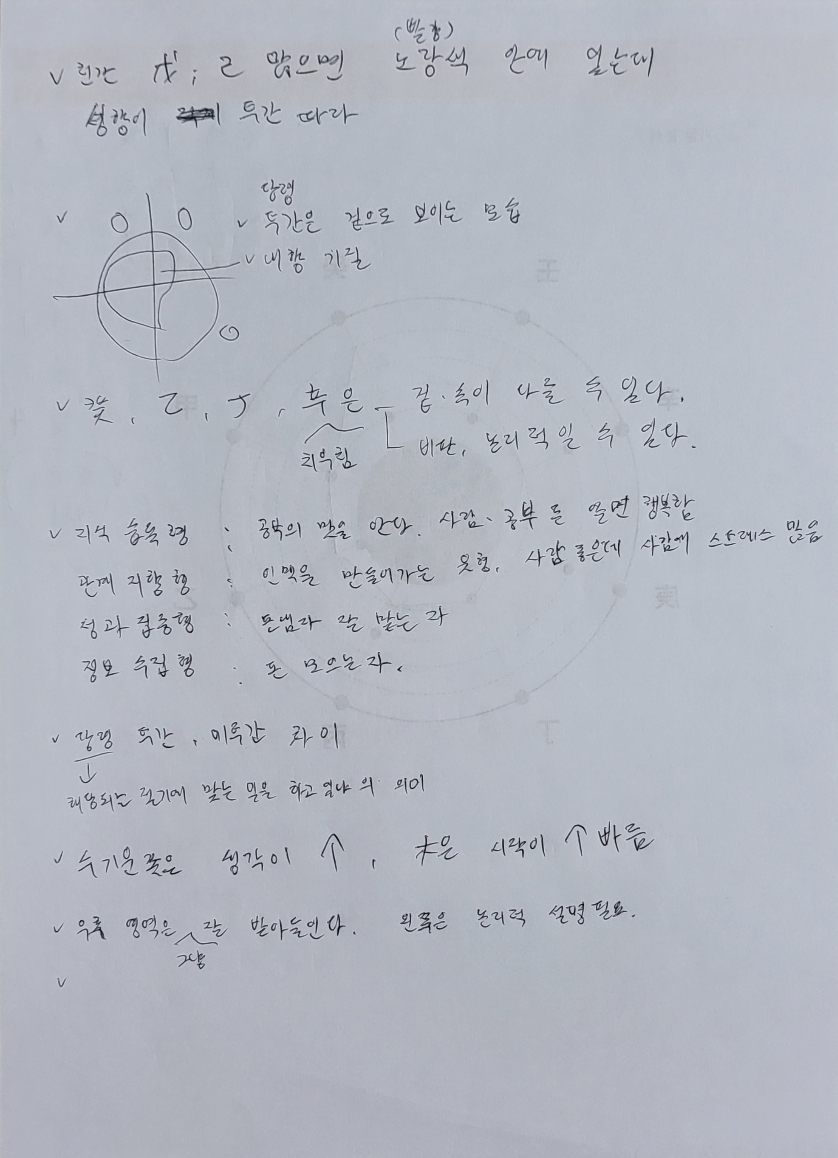 (발향)
✓ 천간 戊, 己 많으면 노랑색 안에 있는데
성향이 투간 따라
당령
✓ 투간은 겉으로 보이는 모습
✓ 내향 기질
✓ 꽃, 乙, 丁, 후은 겉·속이 다를 수 있다.
치우침
비판, 논리적일 수 있다.
✓ 지식 습득형 : 공부의 맛을 안다. 사람·공부 등 알면 행복함
관계 지향형 : 인맥을 만들어가는 유형, 사람 좋은데 사람에 스트레스 많음
성과 집중형 : 돈냄과 잘 맡는 자
정보 수집형 : 돈 모으는 자.
✓ 당령 투간, 미투간 차이
↓
해당되는 절기에 맞는 일을 하고 있냐의 의미
✓ 수기운쪽은 생각이 ↑, 木은 시작이 ↑ 빠름
✓ 우측 영역은 잘 받아들인다. 왼쪽은 논리적 설명필요.
그냥
✓
壬
庚
丁